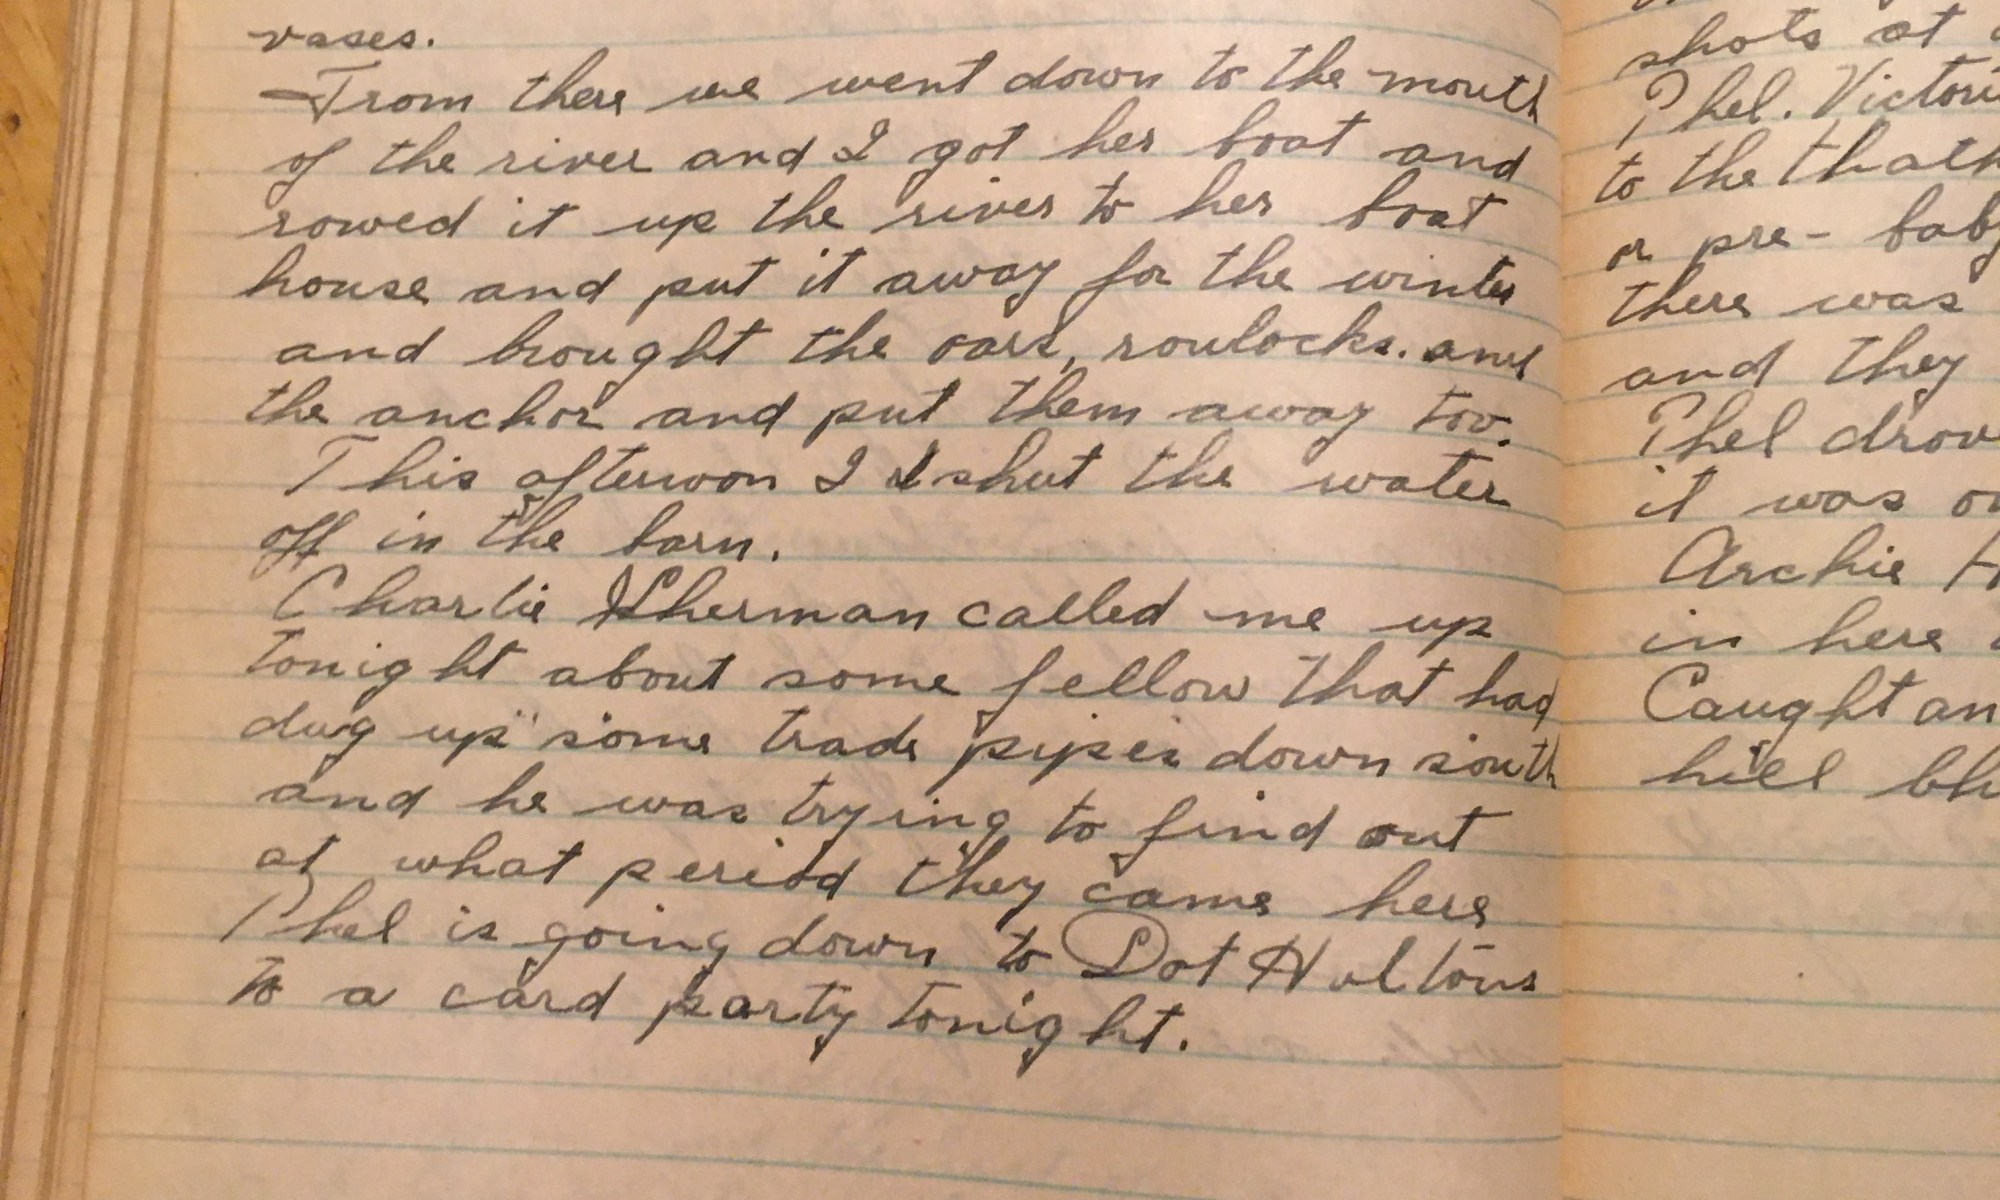 vases.
From there we went down to the mouth
of the river and I got her boat and
rowed it up the river to her boat
house and put it away for the winter
and brought the oars, roulocks. and
the anchor and put them away too.
This afternoon I shut the water
off in the barn.
Charlie Sherman called me up
tonight about some fellow that had
dug up some trade pipes down south
and he was trying to find out
at what period they came here
Phel is going down to Dot Hultons
to a card party tonight.
shots at
Phel. Victori
to the that
or pre- baby
there was
and they
Phel drov
it was
Archie H
in here
Caught an
hill